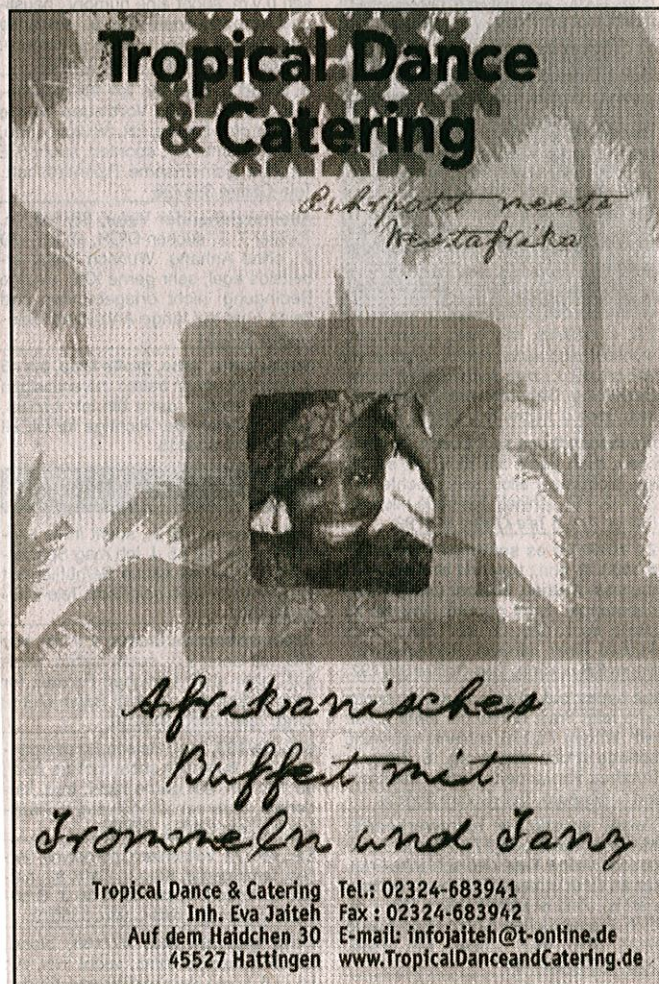 Tropical Dance
& Catering
Ruhrpott meets
Westafrika
Afrikanisches
Buffet mit
Trommeln und Tanz
Tropical Dance & Catering
Inh. Eva Jaiteh
Auf dem Haidchen 30
45527 Hattingen
Tel.: 02324-683941
Fax : 02324-683942
E-mail: infojaiteh@t-online.de
www.TropicalDanceandCatering.de